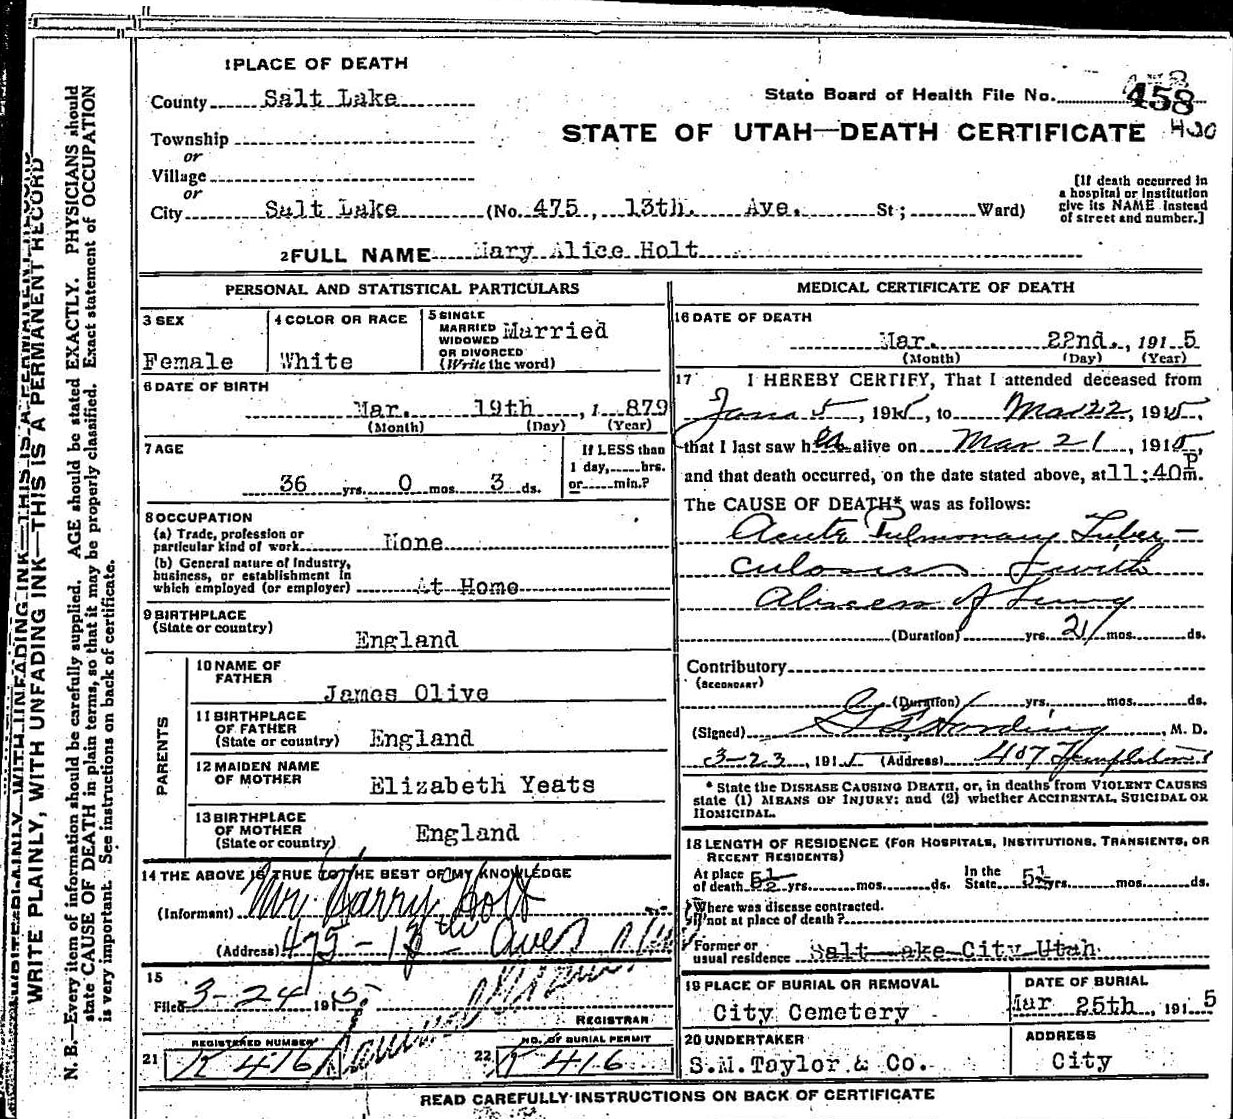 1 PLACE OF DEATH
County Salt Lake
State Board of Health File No. 458
Township
STATE OF UTAH—DEATH CERTIFICATE 420
or
Village
or
City Salt Lake (No. 475, 13th. Ave. St; Ward)
[If death occurred in
a hospital or institution
give its NAME instead
of street and number.]
2 FULL NAME Mary Alice Holt
PERSONAL AND STATISTICAL PARTICULARS
3 SEX
Female
4 COLOR OR RACE
White
5 SINGLE
MARRIED
WIDOWED
OR DIVORCED
(Write the word)
Married
6 DATE OF BIRTH
Mar. 19th , 1 879
(Month) (Day) (Year)
7 AGE
36 yrs. 0 mos. 3 ds.
If LESS than
1 day, hrs.
or min.?
8 OCCUPATION
(a) Trade, profession or
particular kind of work None
(b) General nature of industry,
business, or establishment in
which employed (or employer) At Home
9 BIRTHPLACE
(State or country)
England
PARENTS
10 NAME OF
FATHER
James Olive
11 BIRTHPLACE
OF FATHER
(State or country) England
12 MAIDEN NAME
OF MOTHER Elizabeth Yeats
13 BIRTHPLACE
OF MOTHER
(State or country) England
14 THE ABOVE IS TRUE TO THE BEST OF MY KNOWLEDGE
(Informant) Mr Harry Holt
(Address) 475-13th Ave
15
Filed 3-24 1915
REGISTRAR
21 REGISTERED NUMBER
K 416
22 NO. OF BURIAL PERMIT
K 416
MEDICAL CERTIFICATE OF DEATH
16 DATE OF DEATH
Mar. 22nd., 191 5
(Month) (Day) (Year)
17 I HEREBY CERTIFY, That I attended deceased from
Jan 5, 1915, to Mar 22, 1915,
that I last saw her alive on Mar 21, 1915,
and that death occurred, on the date stated above, at 11:40 P m.
The CAUSE OF DEATH* was as follows:
Acute Pulmonary Tuber-
culosis with
Abscess of Lung
(Duration) yrs. 21 mos. ds.
Contributory
(SECONDARY)
(Duration) yrs. mos. ds.
(Signed) Harding, M. D.
3-23, 1915 (Address) 407 Templeton
* State the DISEASE CAUSING DEATH, or, in deaths from VIOLENT CAUSES
state (1) MEANS OF INJURY; and (2) whether ACCIDENTAL, SUICIDAL OR
HOMICIDAL.
18 LENGTH OF RESIDENCE (FOR HOSPITALS, INSTITUTIONS, TRANSIENTS, OR
RECENT RESIDENTS)
At place
of death yrs. mos. ds.
In the
State yrs. mos. ds.
Where was disease contracted.
if not at place of death?
Former or
usual residence Salt Lake City Utah
19 PLACE OF BURIAL OR REMOVAL
City Cemetery
DATE OF BURIAL
Mar 25th, 191 5
20 UNDERTAKER
S.M.Taylor & Co.
ADDRESS
City
READ CAREFULLY INSTRUCTIONS ON BACK OF CERTIFICATE
WRITE PLAINLY, WITH UNFADING INK—THIS IS A PERMANENT RECORD
N. B.—Every item of information should be carefully supplied. AGE should be stated EXACTLY. PHYSICIANS should
state CAUSE OF DEATH in plain terms, so that it may be properly classified. Exact statement of OCCUPATION
is very important. See instructions on back of certificate.